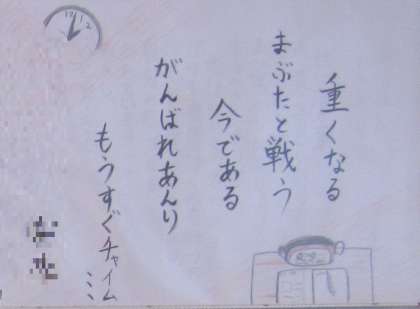 重くなる
まぶたと戦う
今である
がんばれあんり
もうすぐチャイム…